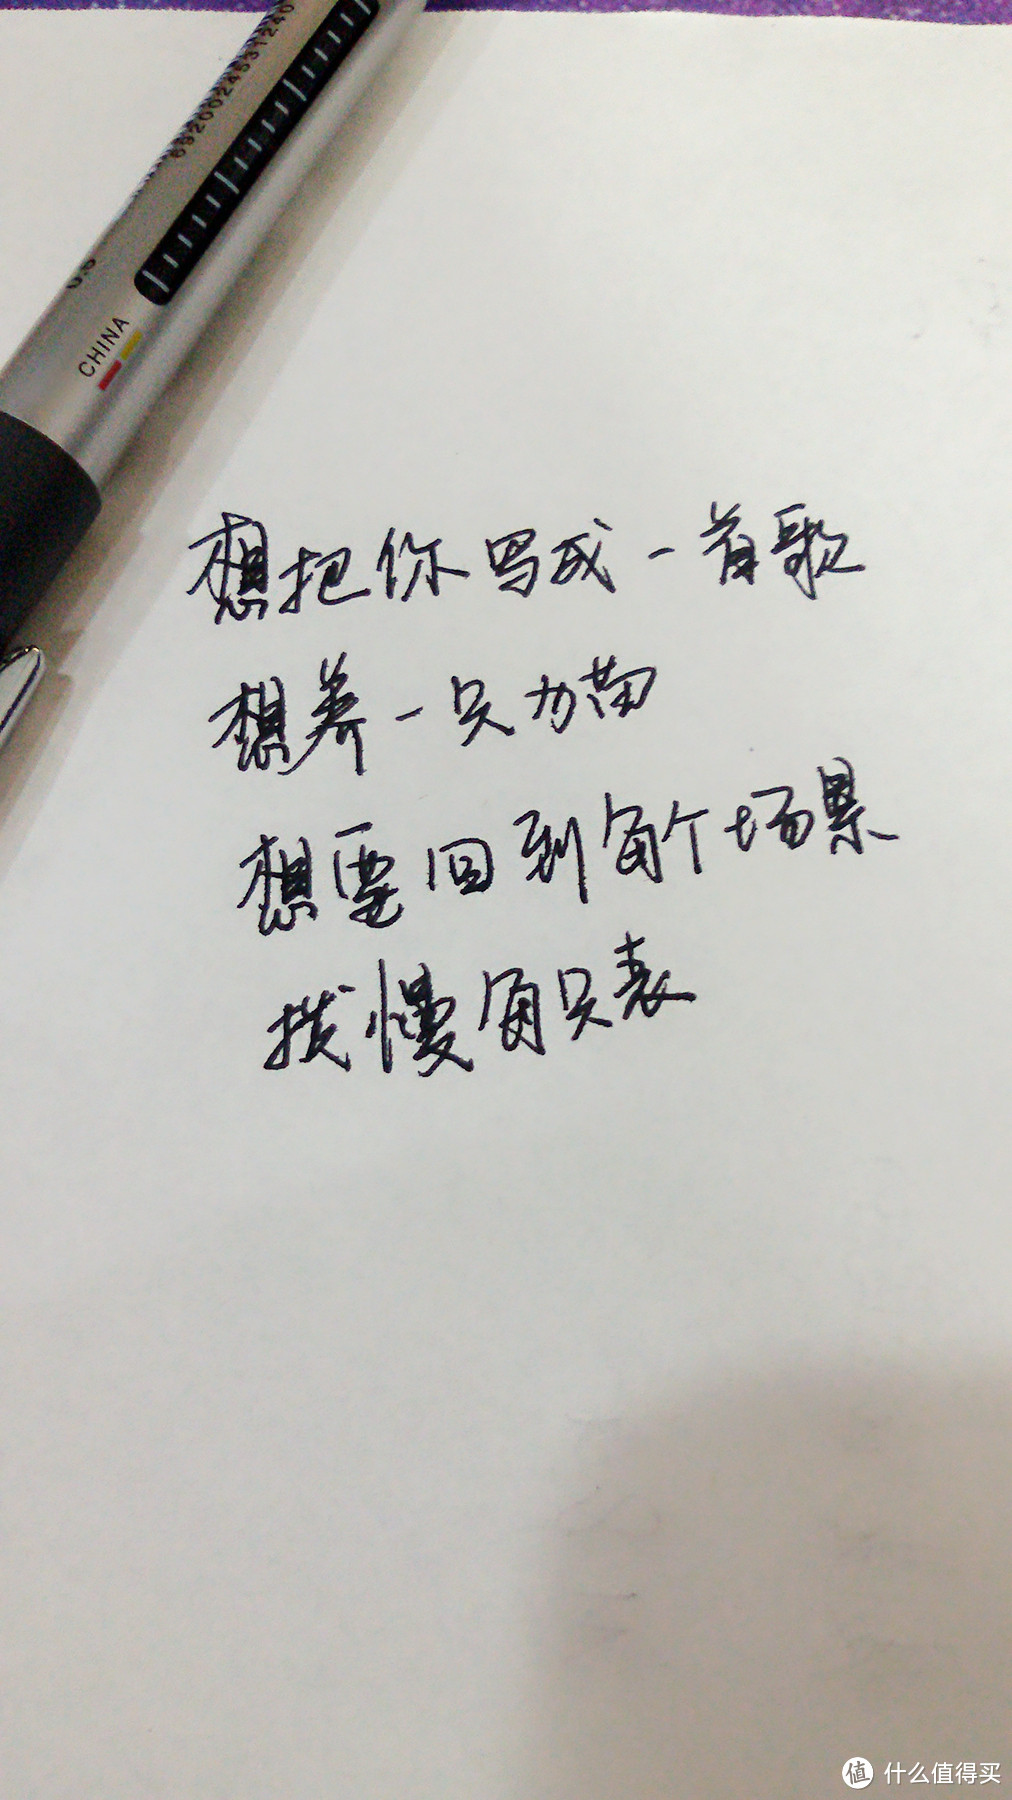 6920024531240
0.5
CHINA
想把你写成一首歌
想养一只力苗
想要回到每个场景
拨慢每只表
值 什么值得买